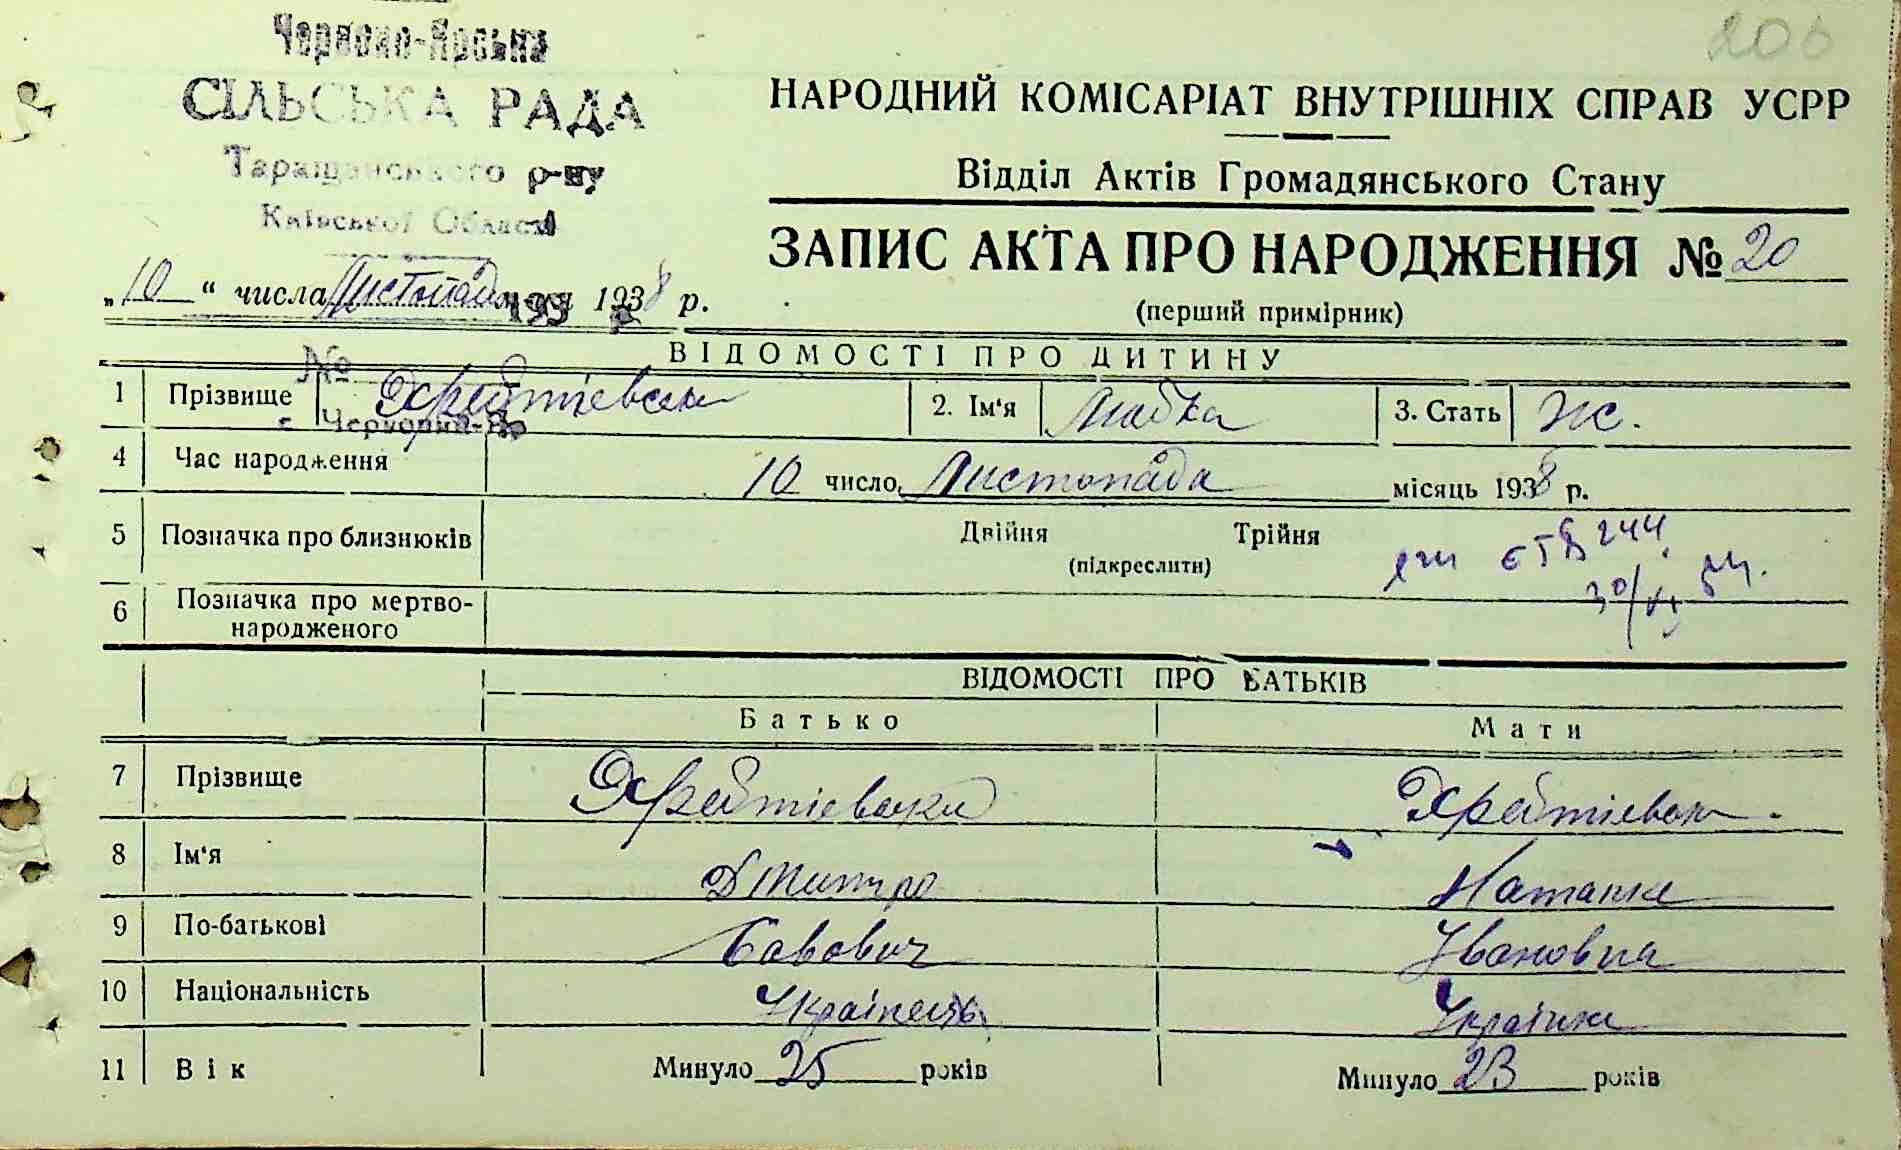 206
СІЛЬСЬКА РАДА
Таращанського р-ну
Київської Області
НАРОДНИЙ КОМІСАРІАТ ВНУТРІШНІХ СПРАВ УСРР
Відділ Актів Громадянського Стану
ЗАПИС АКТА ПРО НАРОДЖЕННЯ № 20
(перший примірник)
„10“ числа Листопада 1938 р.
193 р.
№
ВІДОМОСТІ ПРО ДИТИНУ
1 Прізвище 2. Ім‘я 3. Стать Ж.
4 Час народження 10 число Листопада місяць 1938 р.
5 Позначка про близнюків Двійня Трійня
(підкреслити)
6 Позначка про мертво-
народженого
ВІДОМОСТІ ПРО БАТЬКІВ
Батько Мати
7 Прізвище
8 Ім‘я Дмитро
9 По-батькові Савович Івановна
10 Національність Українець Українка
11 Вік Минуло 25 років Минуло 23 років